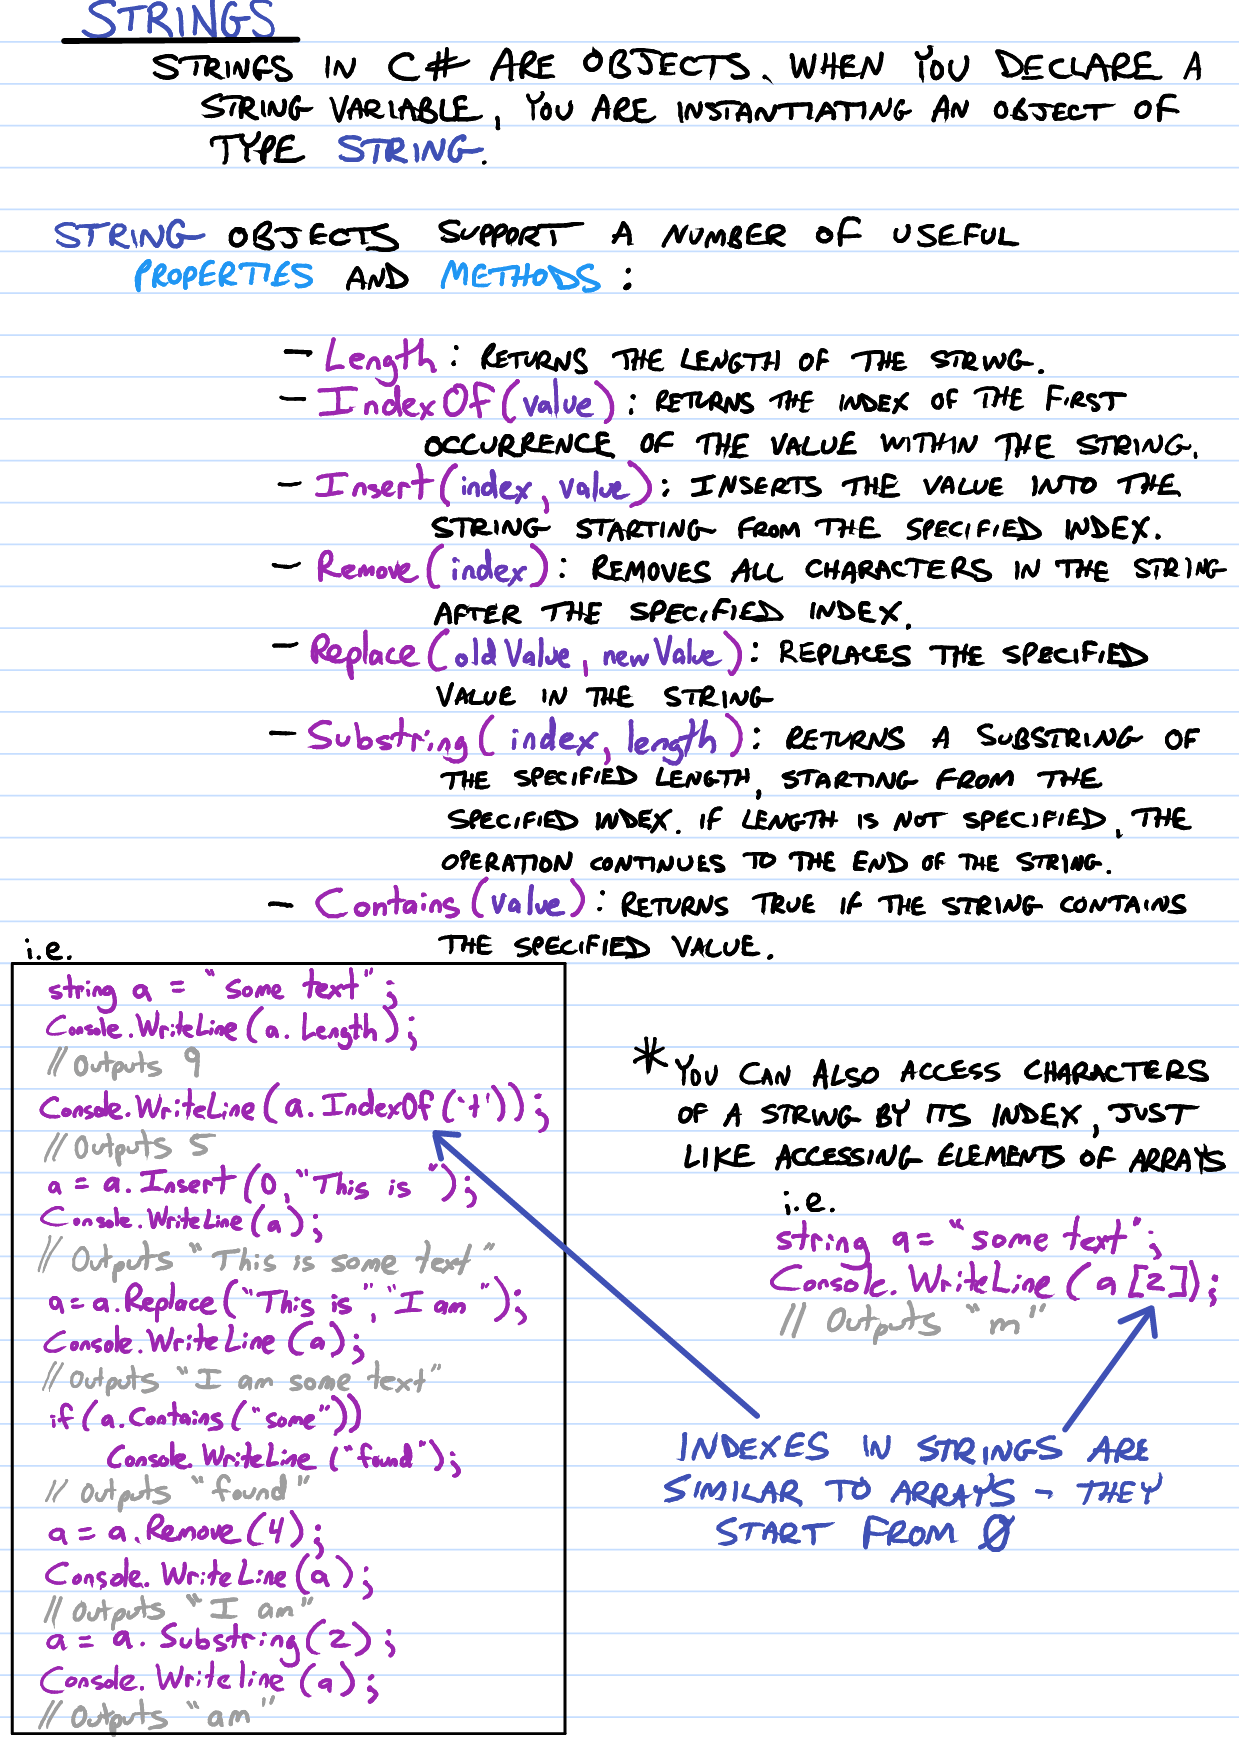 STRINGS
STRINGS IN C# ARE OBJECTS. WHEN YOU DECLARE A
STRING VARIABLE, YOU ARE INSTANTIATING AN OBJECT OF
TYPE STRING.
STRING OBJECTS SUPPORT A NUMBER OF USEFUL
PROPERTIES AND METHODS :
- Length : RETURNS THE LENGTH OF THE STRING.
- IndexOf(value) : RETURNS THE INDEX OF THE FIRST
OCCURRENCE OF THE VALUE WITHIN THE STRING.
- Insert(index, value) : INSERTS THE VALUE INTO THE
STRING STARTING FROM THE SPECIFIED INDEX.
- Remove(index) : REMOVES ALL CHARACTERS IN THE STRING
AFTER THE SPECIFIED INDEX.
- Replace(oldValue, newValue) : REPLACES THE SPECIFIED
VALUE IN THE STRING
- Substring(index, length) : RETURNS A SUBSTRING OF
THE SPECIFIED LENGTH, STARTING FROM THE
SPECIFIED INDEX. IF LENGTH IS NOT SPECIFIED, THE
OPERATION CONTINUES TO THE END OF THE STRING.
- Contains(value) : RETURNS TRUE IF THE STRING CONTAINS
THE SPECIFIED VALUE.
i.e.
string a = "some text";
Console.WriteLine(a.Length);
// Outputs 9
Console.WriteLine(a.IndexOf('t'));
// Outputs 5
a = a.Insert(0, "This is ");
Console.WriteLine(a);
// Outputs "This is some text"
a = a.Replace("This is", "I am ");
Console.WriteLine(a);
// Outputs "I am some text"
if (a.Contains("some"))
Console.WriteLine("found");
// Outputs "found"
a = a.Remove(4);
Console.WriteLine(a);
// Outputs "I am"
a = a.Substring(2);
Console.Writeline(a);
// Outputs "am"
* YOU CAN ALSO ACCESS CHARACTERS
OF A STRING BY ITS INDEX, JUST
LIKE ACCESSING ELEMENTS OF ARRAYS
i.e.
string a = "some text";
Console.WriteLine(a[2]);
// Outputs "m"
INDEXES IN STRINGS ARE
SIMILAR TO ARRAYS - THEY
START FROM 0